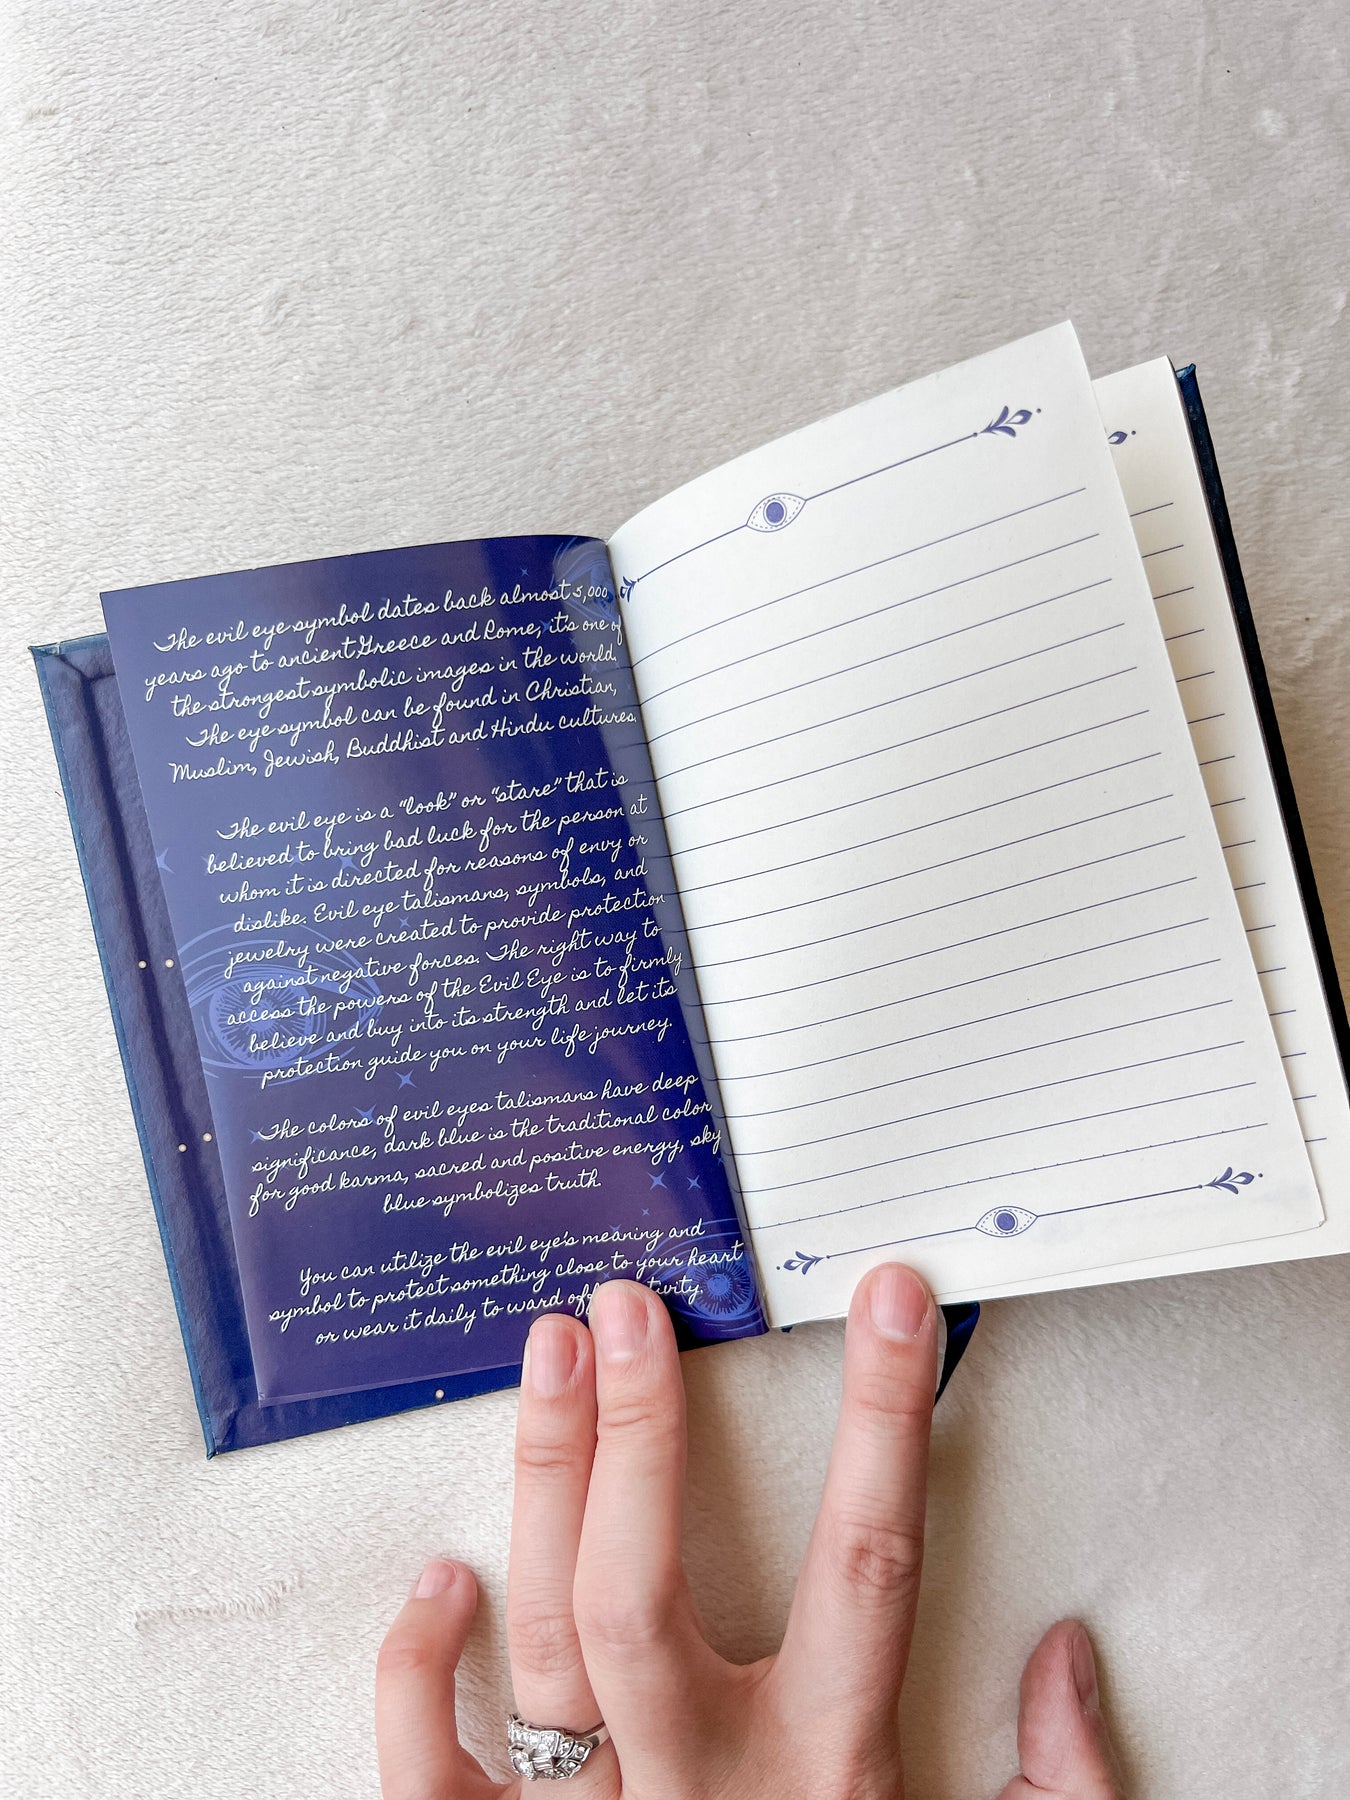 The evil eye symbol dates back almost 5,000
years ago to ancient Greece and Rome, it's one of
the strongest symbolic images in the world.
The eye symbol can be found in Christian,
Muslim, Jewish, Buddhist and Hindu cultures.
The evil eye is a "look" or "stare" that is
believed to bring bad luck for the person at
whom it is directed for reasons of envy or
dislike. Evil eye talismans, symbols, and
jewelry were created to provide protection
against negative forces. The right way to
access the powers of the Evil Eye is to firmly
believe and buy into its strength and let its
protection guide you on your life journey.
The colors of evil eyes talismans have deep
significance, dark blue is the traditional color
for good karma, sacred and positive energy, sky
blue symbolizes truth.
You can utilize the evil eye's meaning and
symbol to protect something close to your heart
or wear it daily to ward off